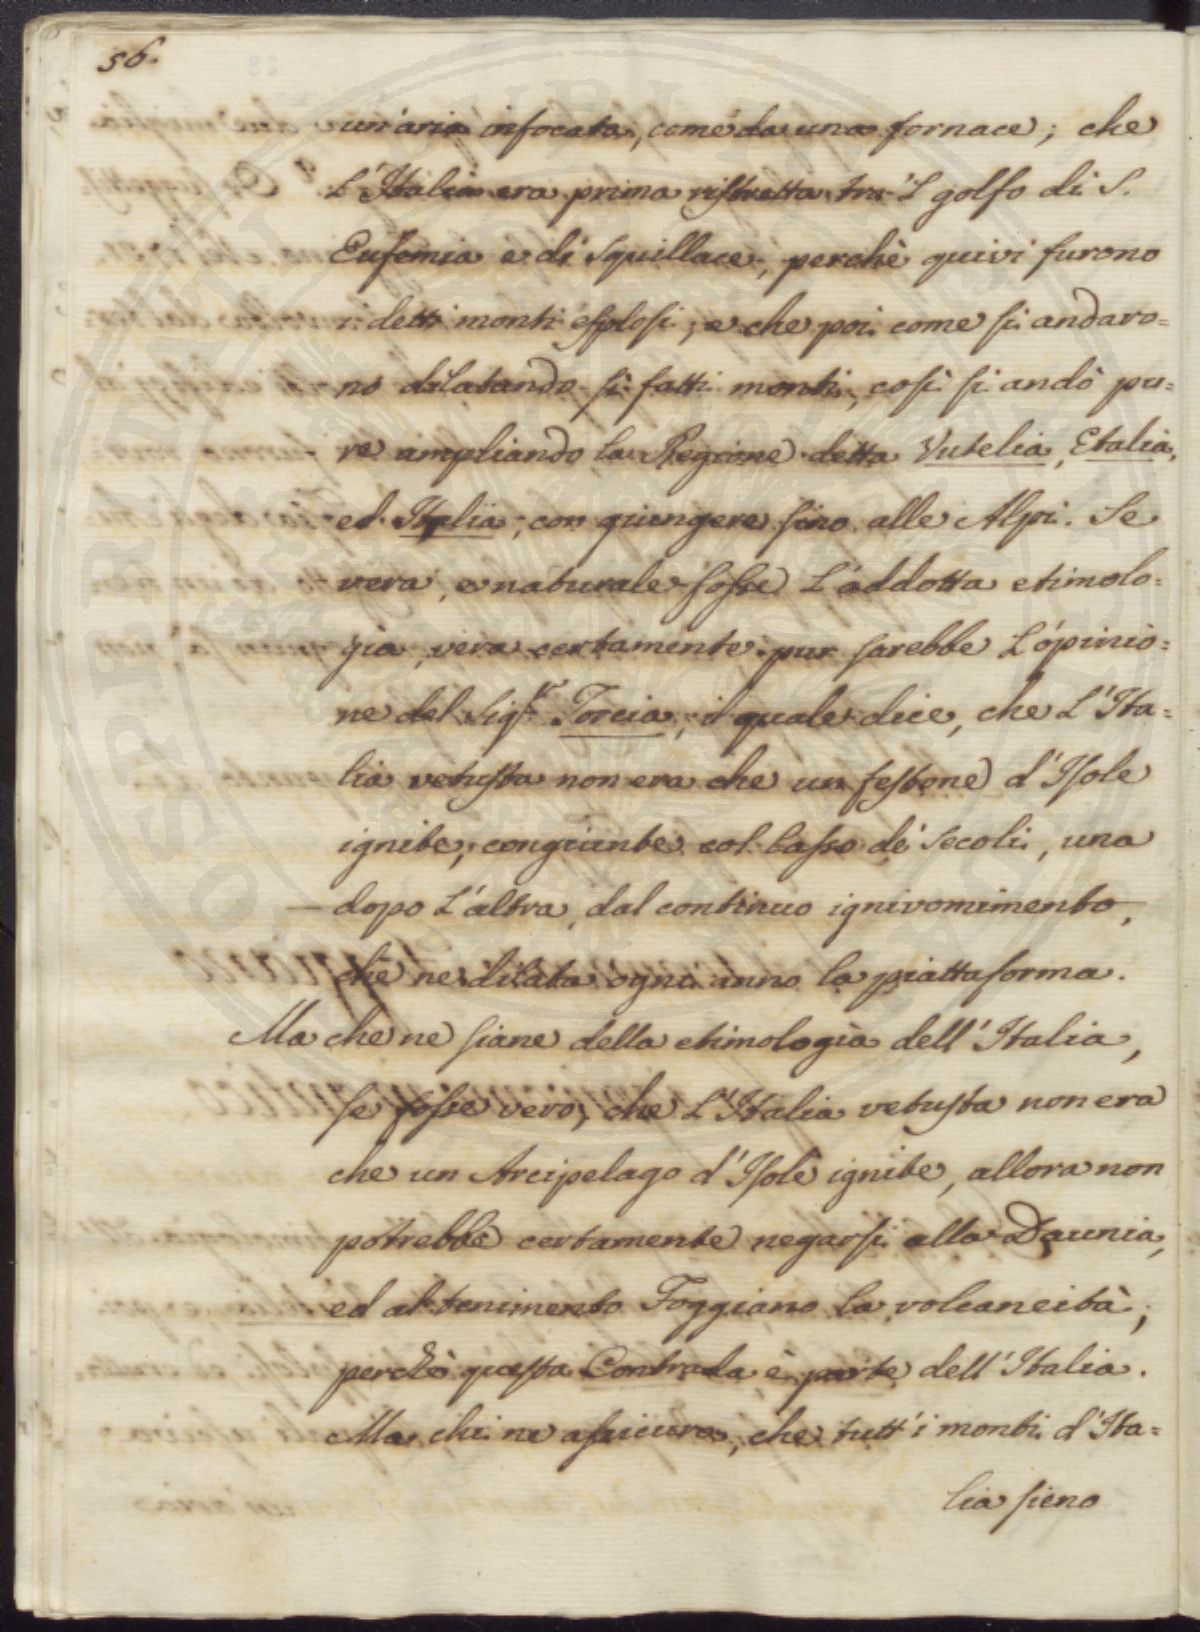 56.
un'aria infocata, come da una fornace; che
L'Italia era prima ristretta tra 'L golfo di S.
Eufemia e di Squillace, perchè quivi furono
i detti monti esplosi; e che poi come si andaro=
no dilatando sì fatti monti, così si andò pu=
re ampliando la Regione detta Vutelia, Etalia,
ed Italia, con giungere sino alle Alpi. Se
vera, e naturale fosse L'addotta etimolo=
gia, vera certamente pur sarebbe L'opinio=
ne del Sig.r Torcia, il quale dice, che L'Ita=
lia vetusta non era che un festone d'Isole
ignite, congiunte col lasso de' secoli, una
dopo L'altra, dal continuo ignivomimento,
che ne dilata ogni anno la piattaforma.
Ma che ne siane della etimologia dell'Italia,
se fosse vero, che L'Italia vetusta non era
che un Arcipelago d'Isole ignite, allora non
potrebbe certamente negarsi alla Daunia,
ed al tenimento Foggiano la volcaneità;
perchè questa Contrada è parte dell'Italia.
Ma chi ne assicura, che tutt'i monti d'Ita=
lia sieno